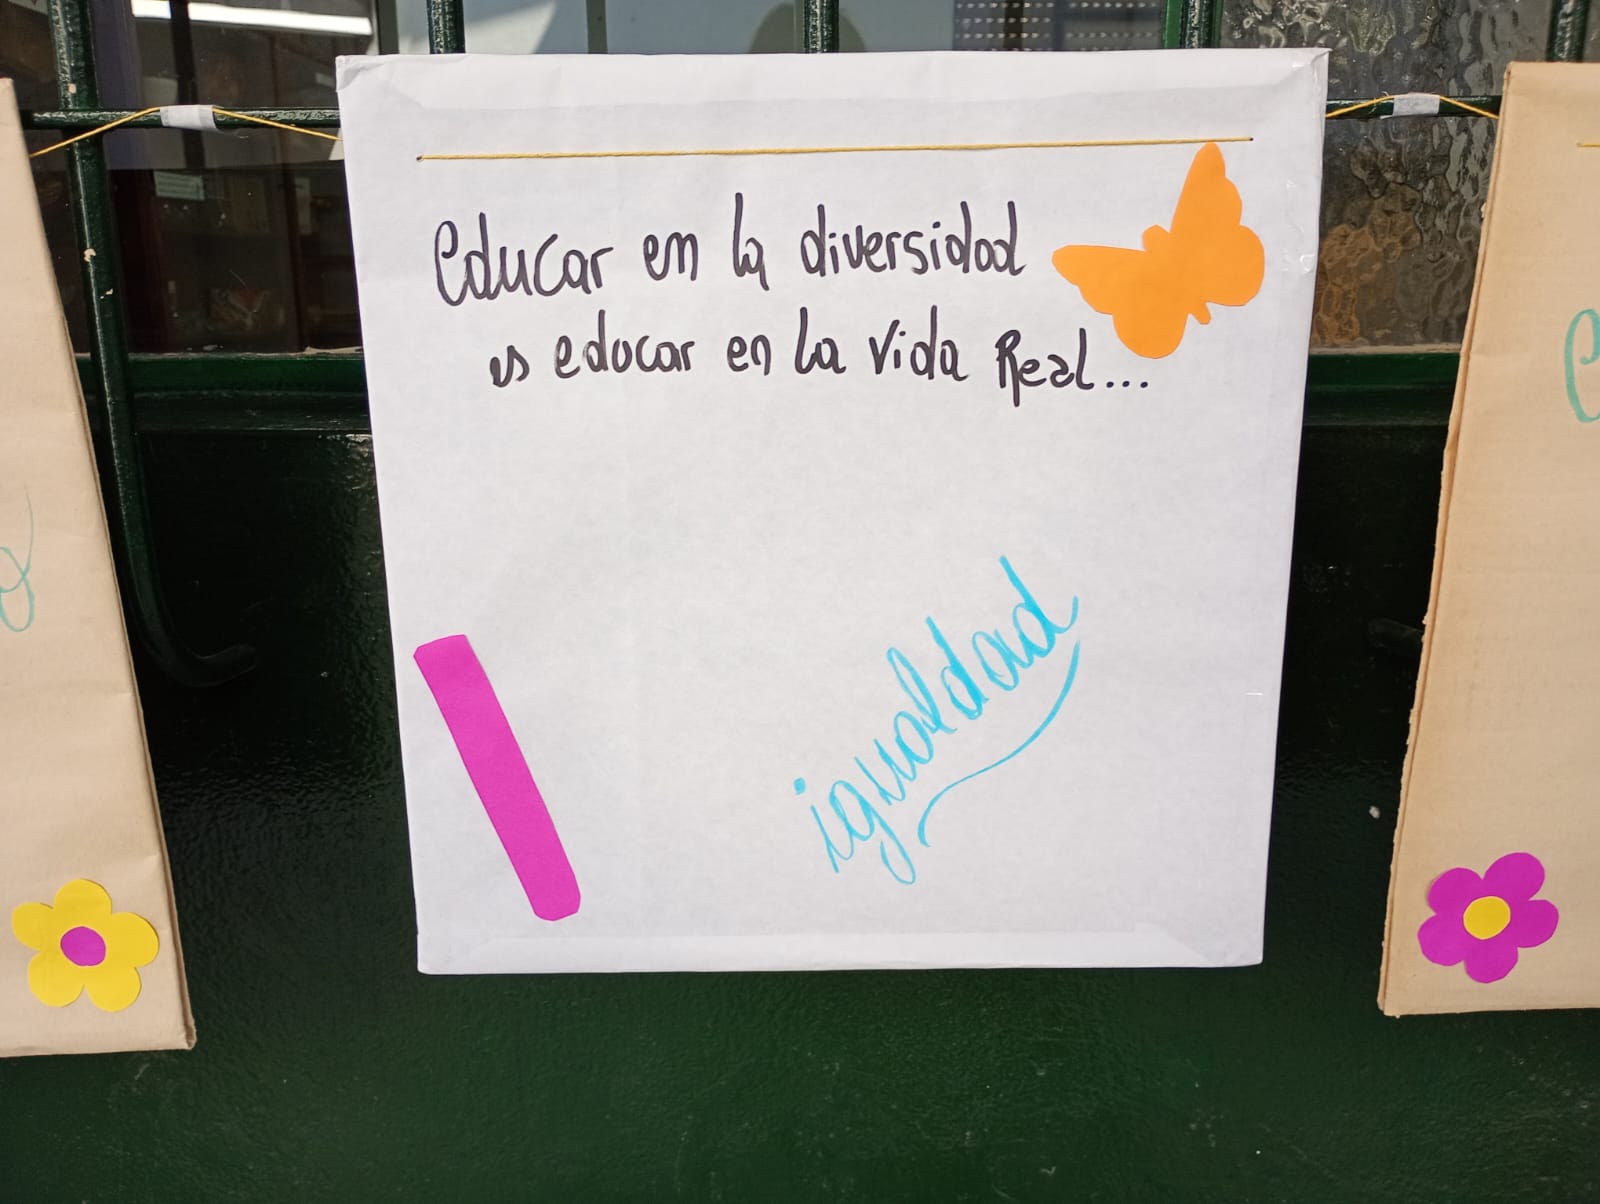 Educar en la diversidad
es educar en la vida Real...
igualdad